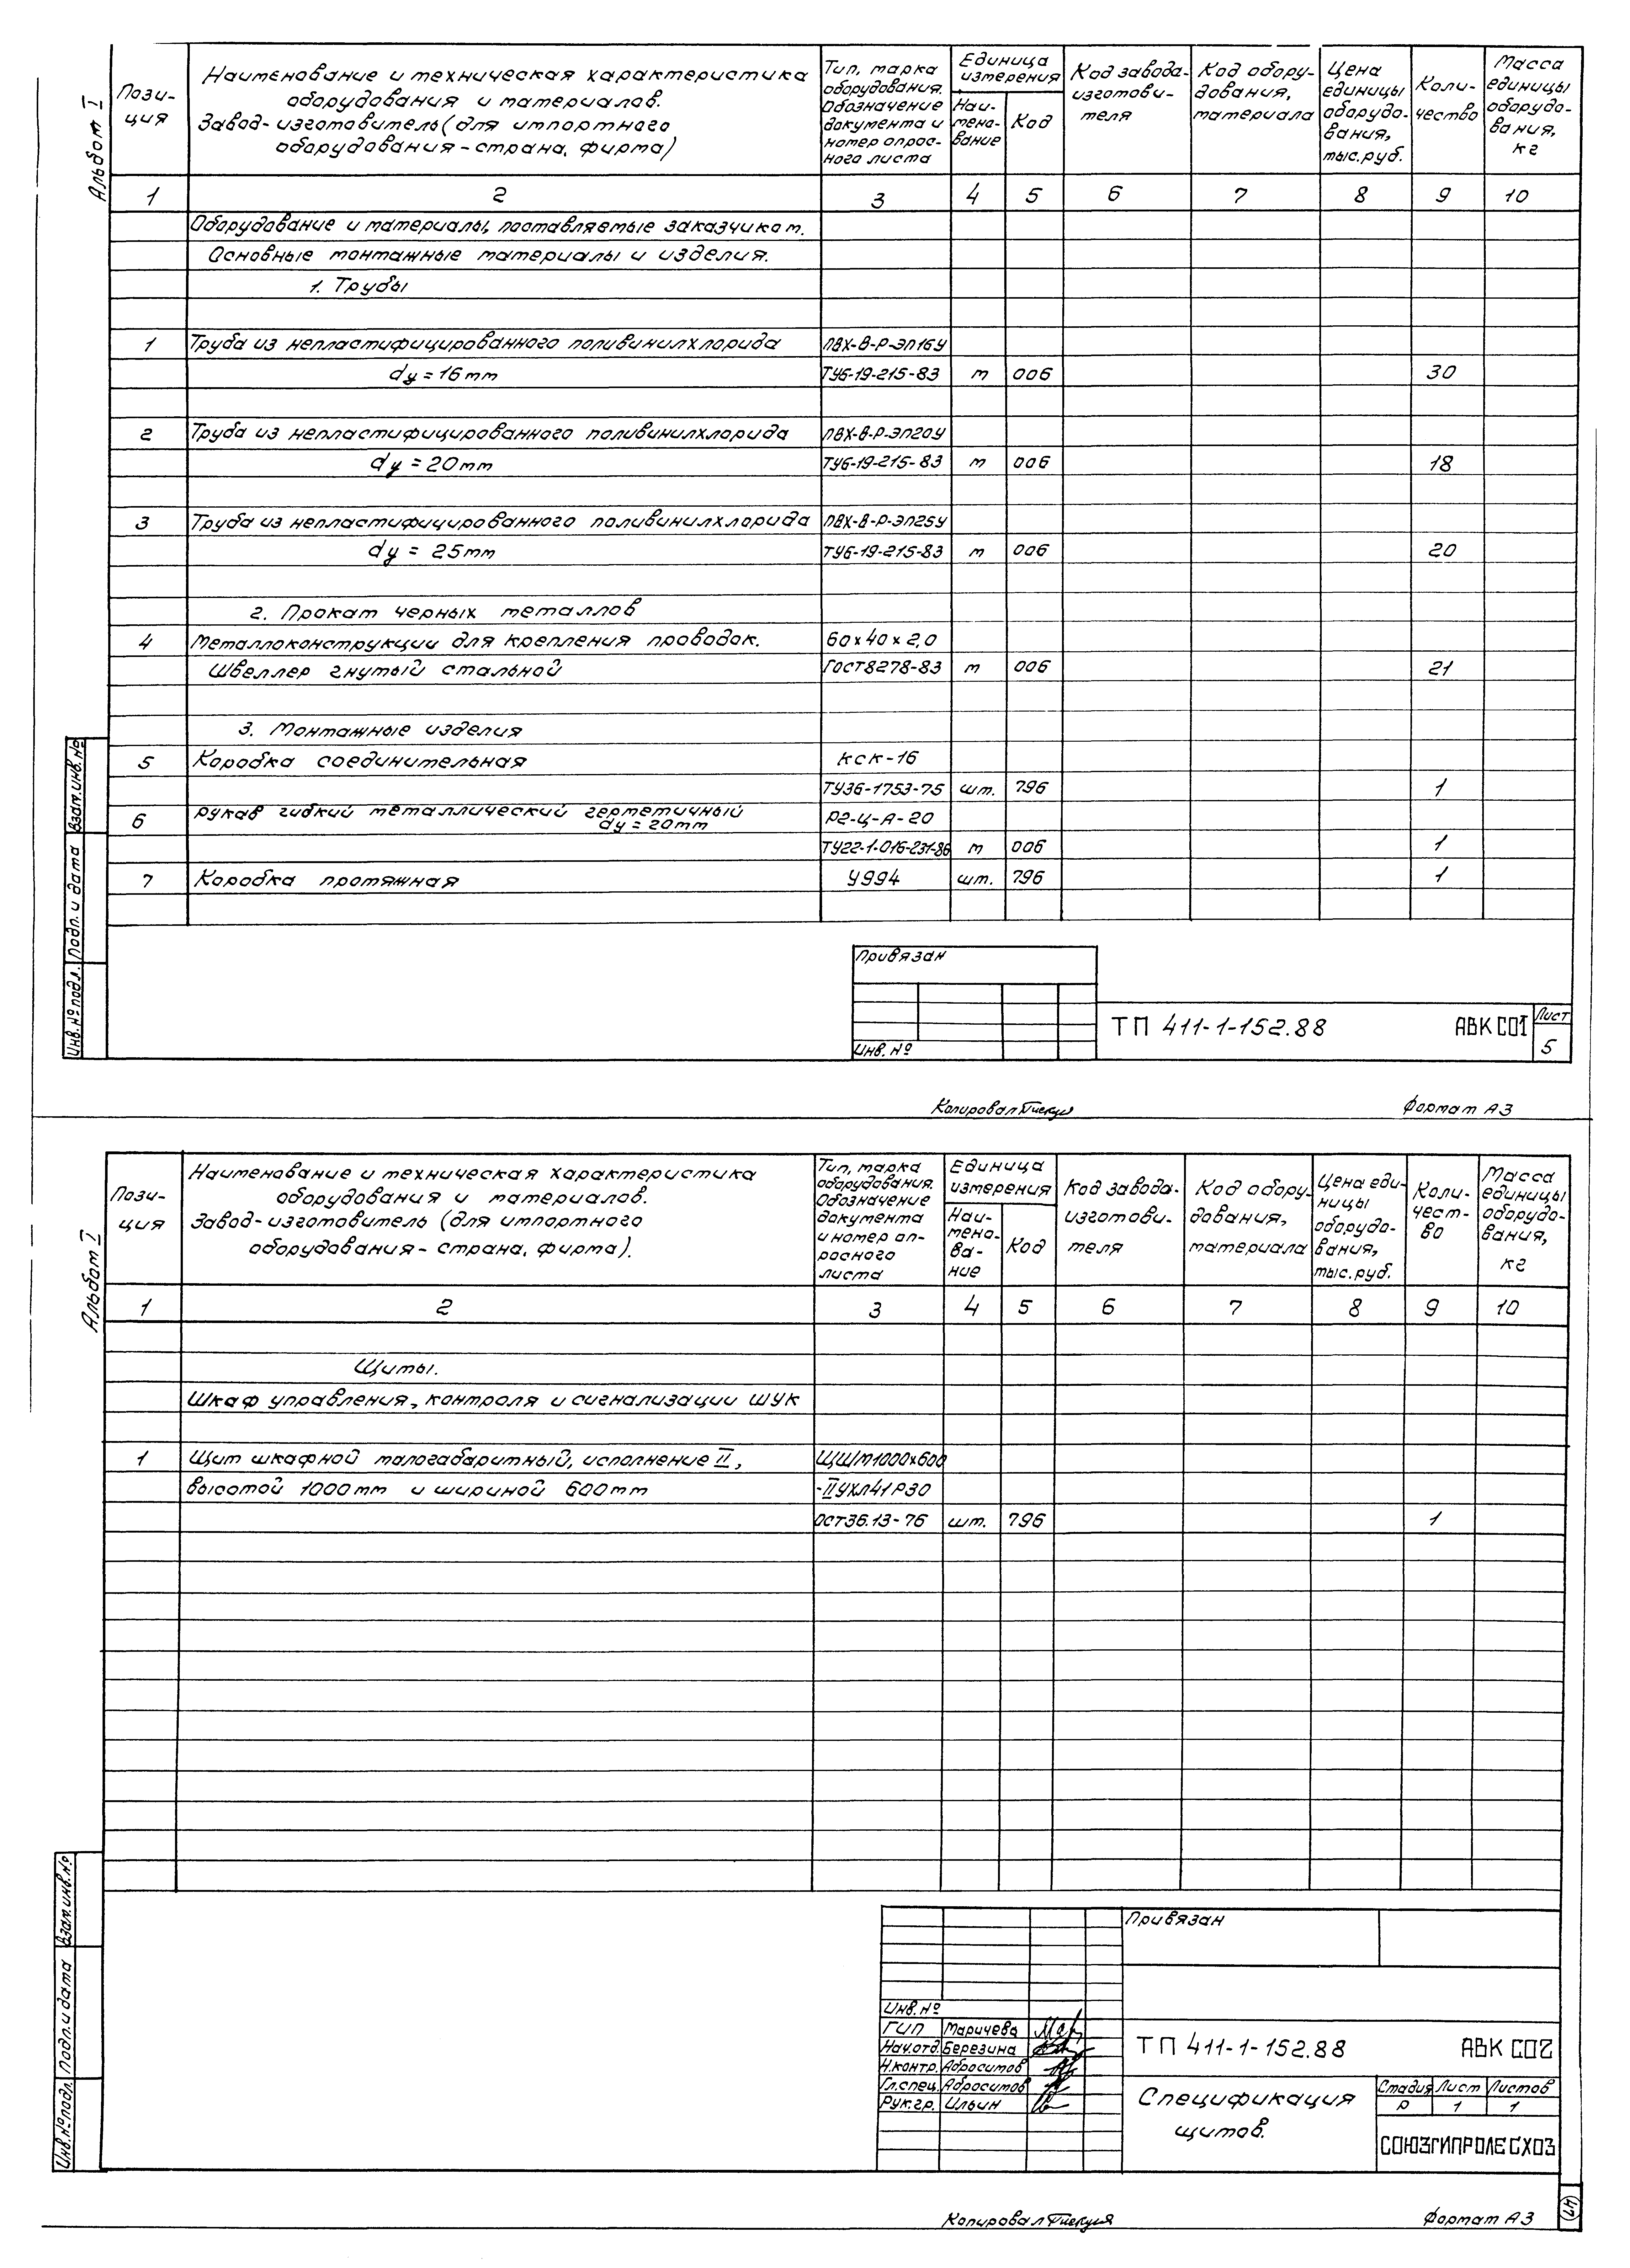 Альбом I
Пози-
ция
Наименование и техническая характеристика
оборудования и материалов.
Завод-изготовитель (для импортного
оборудования - страна, фирма)
Тип, марка
оборудования.
Обозначение
документа и
номер опрос-
ного листа
Единица
измерения
Наи-
мено-
вание
Код
Код завода-
изготови-
теля
Код обору-
дования,
материала
Цена
единицы
оборудо-
вания,
тыс. руб.
Коли-
чество
Масса
единицы
оборудо-
вания,
кг
1 2 3 4 5 6 7 8 9 10
Оборудование и материалы, поставляемые заказчиком.
Основные монтажные материалы и изделия.
1. Трубы
1 Труба из непластифицированного поливинилхлорида ПВХ-В-Р-ЭП16У
dу = 16мм ТУ6-19-215-83 м 006 30
2 Труба из непластифицированного поливинилхлорида ПВХ-В-Р-ЭП20У
dу = 20мм ТУ6-19-215-83 м 006 18
3 Труба из непластифицированного поливинилхлорида ПВХ-В-Р-ЭП25У
dу = 25мм ТУ6-19-215-83 м 006 20
2. Прокат черных металлов
4 Металлоконструкции для крепления проводок. 60х40х2,0
Швеллер гнутый стальной ГОСТ8278-83 м 006 21
3. Монтажные изделия
5 Коробка соединительная КСК-16
ТУ36-1753-75 шт. 796 1
6 Рукав гибкий металлический герметичный РГ-Ц-А-20
dу = 20мм
ТУ22-1-016-231-86 м 006 1
7 Коробка протяжная У994 шт. 796 1
Взам.инв.№
Подп. и дата
Инв.№подл.
Привязан
Инв. №
ТП 411-1-152.88 АВК СО1
Лист
5
Копировал
Формат А3
Альбом I
Пози-
ция
Наименование и техническая характеристика
оборудования и материалов.
Завод-изготовитель (для импортного
оборудования - страна, фирма).
Тип, марка
оборудования.
Обозначение
документа
и номер оп-
росного
листа
Единица
измерения
Наи-
мено-
ва-
ние
Код
Код завода-
изготови-
теля
Код обору-
дования,
материала
Цена еди-
ницы
оборудо-
вания,
тыс. руб.
Коли-
чест-
во
Масса
единицы
оборудо-
вания,
кг
1 2 3 4 5 6 7 8 9 10
Щиты.
Шкаф управления, контроля и сигнализации ШУК
1 Щит шкафной малогабаритный, исполнение II, ЩШМ1000х600
высотой 1000мм и шириной 600мм -IIУХЛ41Р30
ОСТ36.13-76 шт. 796 1
Взам.инв.№
Подп. и дата
Инв.№подл.
Привязан
Инв. №
ГИП Маричева
Нач.отд. Березина
Н.контр. Абросимов
Гл.спец. Абросимов
Рук.гр. Ильин
ТП 411-1-152.88 АВК СО2
Спецификация
щитов.
Стадия Лист Листов
Р 1 1
СОЮЗГИПРОЛЕСХОЗ
47
Копировал
Формат А3